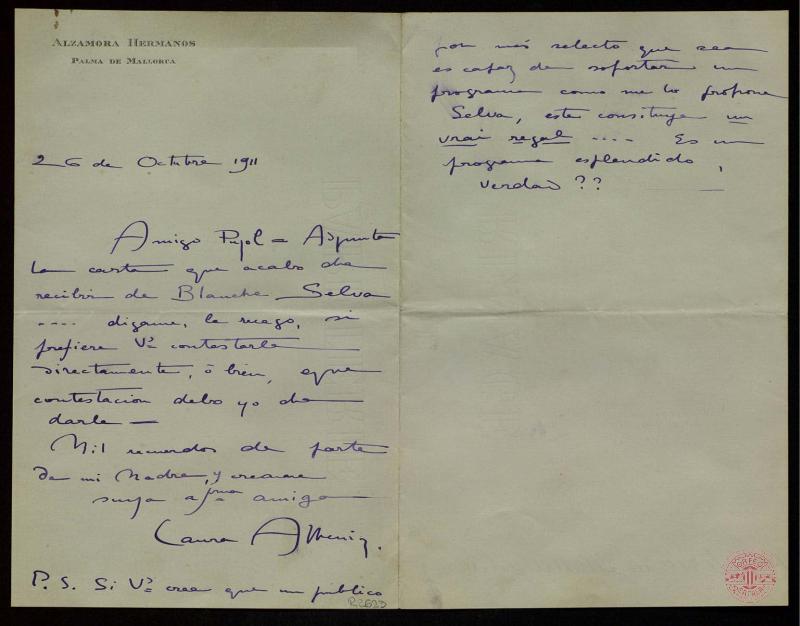 ALZAMORA HERMANOS
PALMA DE MALLORCA
26 de Octubre 1911
Amigo Pujol = Adjunta
la carta que acabo de
recibir de Blanche Selva
.... digame, le ruego, si
prefiere Vd contestarle
directamente, ó bien, que
contestacion debo yo de
darle —
Mil recuerdos de parte
de mi Madre, y creame
suya afma amiga
Laura Albeniz.
P. S. Si Vd cree que un público
por más selecto que sea
es capaz de soportar un
programa como me lo propone
Selva, este constituye un
vrai regal .... Es un
programa esplendido,
verdad ??
R2623
ORFEÓ CATALÀ